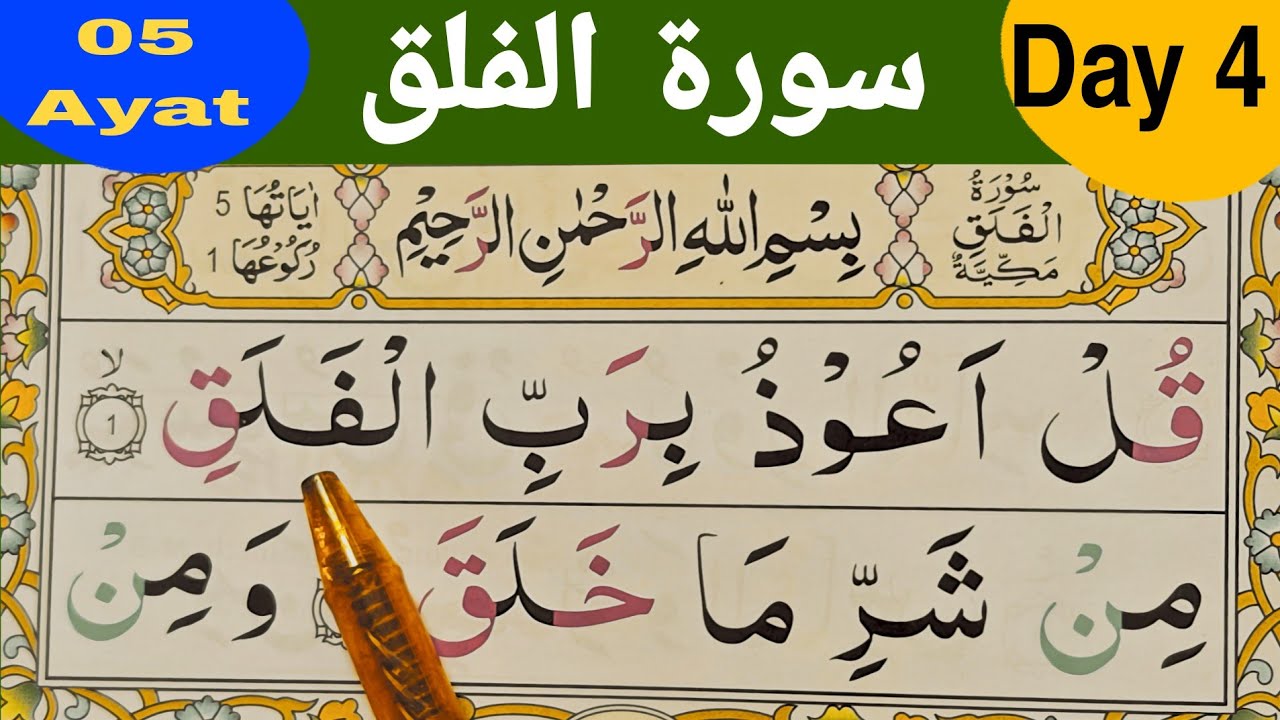 05
Ayat
سورة الفلق
Day 4
سُوْرَةُ
الْفَلَقِ
مَكِّيَّةٌ
بِسْمِ اللّٰهِ الرَّحْمٰنِ الرَّحِيْمِ
اٰيَاتُهَا 5
رُكُوْعُهَا 1
قُلْ اَعُوْذُ بِرَبِّ الْفَلَقِ ۙ 1
مِنْ شَرِّ مَا خَلَقَ وَمِنْ